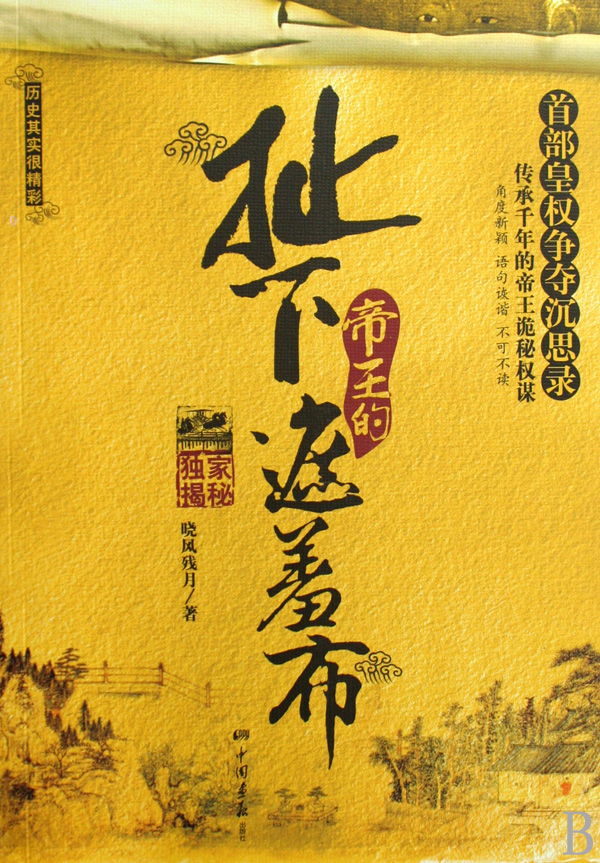 首部皇权争夺沉思录
传承千年的帝王诡秘权谋
角度新颖 语句诙谐 不可不读
历史其实很精彩
扯下
帝王的
遮羞布
独家揭秘
晓风残月/著
中国画报出版社
B